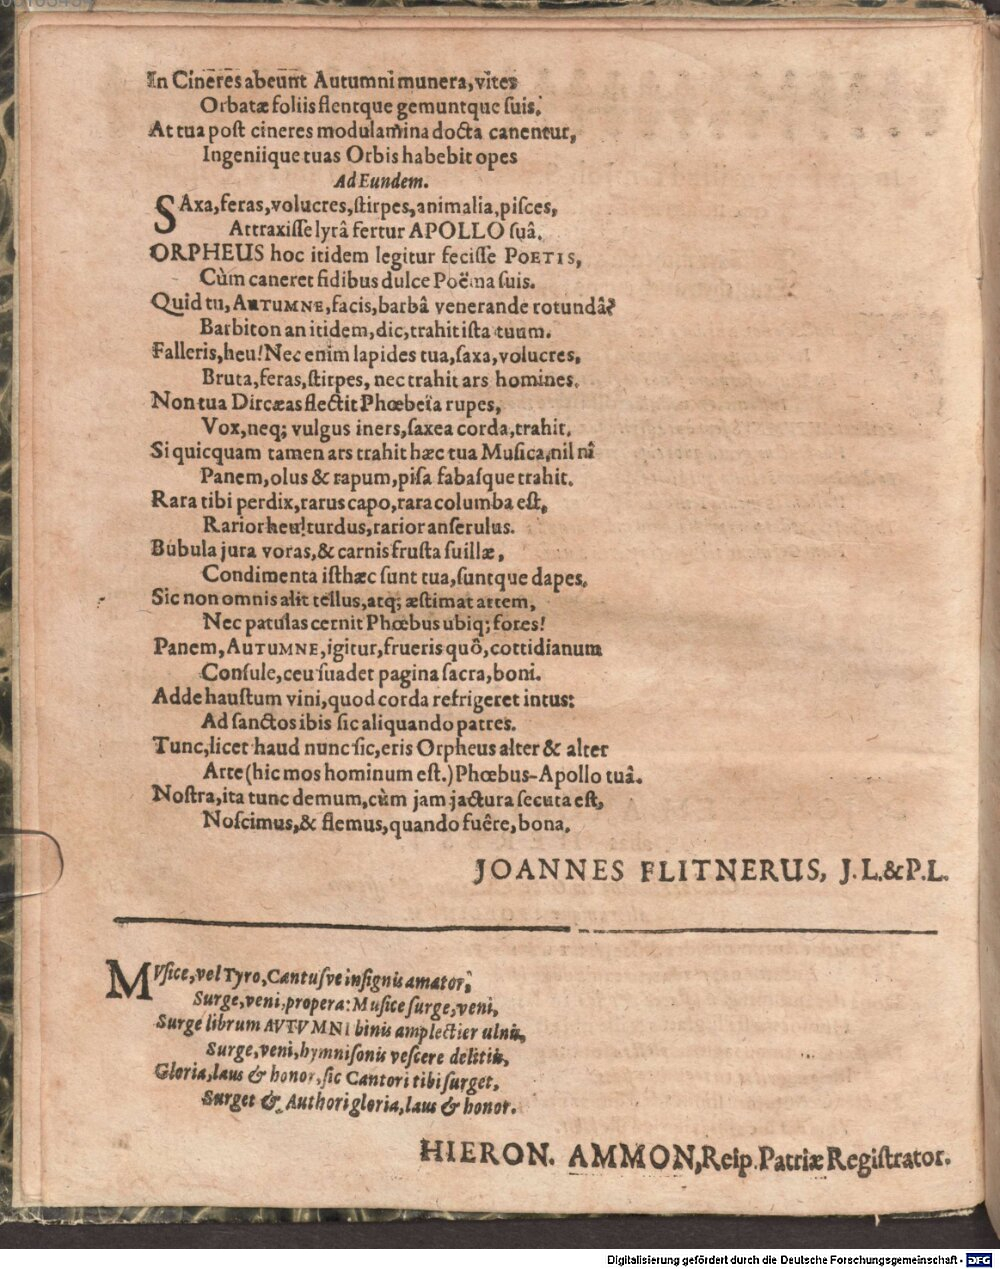 In Cineres abeunt Autumni munera, vites
Orbatæ foliis flentque gemuntque suis.
At tua post cineres modulamina docta canentur,
Ingeniique tuas Orbis habebit opes
Ad Eundem.
SAxa, feras, volucres, stirpes, animalia, pisces,
Attraxisse lyrâ fertur APOLLO suâ.
ORPHEUS hoc itidem legitur fecisse POETIS,
Cùm caneret fidibus dulce Poëma suis.
Quid tu, AUTUMNE, facis, barbâ venerande rotundâ?
Barbiton an itidem, dic, trahit ista tuum.
Falleris, heu! Nec enim lapides tua, saxa, volucres,
Bruta, feras, stirpes, nec trahit ars homines.
Non tua Dircæas flectit Phœbeïa rupes,
Vox, neq; vulgus iners, saxea corda, trahit.
Si quicquam tamen ars trahit hæc tua Musica, nil nî
Panem, olus & rapum, pisa fabasque trahit.
Rara tibi perdix, rarus capo, rara columba est,
Rarior heu! turdus, rarior anserulus.
Bubula jura voras, & carnis frusta suillæ,
Condimenta isthæc sunt tua, suntque dapes.
Sic non omnis alit tellus, atq; æstimat artem,
Nec patulas cernit Phœbus ubiq; fores!
Panem, AUTUMNE, igitur, frueris quô, cottidianum
Consule, ceu suadet pagina sacra, boni.
Adde haustum vini, quod corda refrigeret intus:
Ad sanctos ibis sic aliquando patres.
Tunc, licet haud nunc sic, eris Orpheus alter & alter
Arte (hic mos hominum est.) Phœbus-Apollo tuâ.
Nostra, ita tunc demum, cùm jam jactura secuta est,
Noscimus, & flemus, quando fuêre, bona.
JOANNES FLITNERUS, J. L. & P. L.
MVsice, vel Tyro, Cantusve insignis amator,
Surge, veni, propera: Musice surge, veni,
Surge librum AVTVMNI binis amplectier ulnis,
Surge, veni, hymnisonis vescere delitiis,
Gloria, laus & honor, sic Cantori tibi surget,
Surget & Authori gloria, laus & honor.
HIERON. AMMON, Reip. Patriæ Registrator.
Digitalisierung gefördert durch die Deutsche Forschungsgemeinschaft - DFG